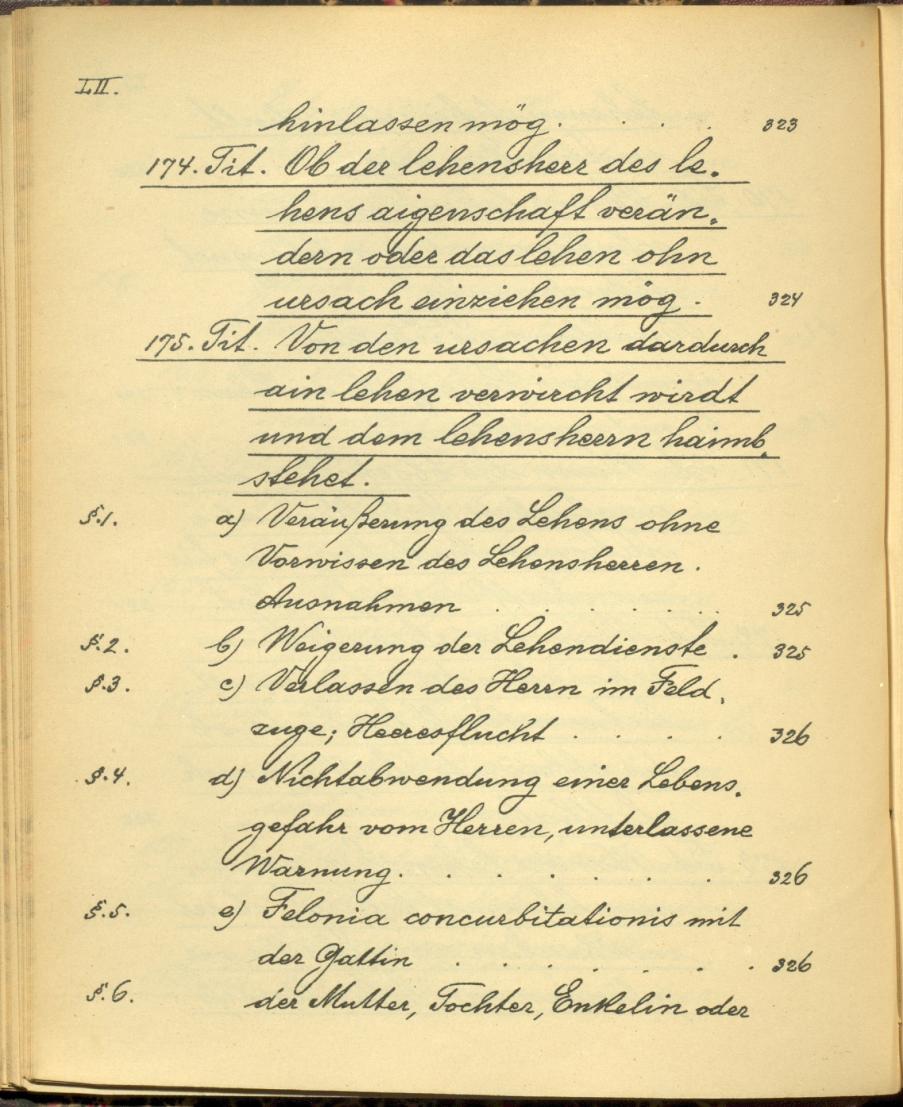 LII.
hinlassen mög . . . . 323
174. Tit. Ob der lehensherr des le-
hens aigenschaft verän-
dern oder das lehen ohn
ursach einziehen mög . 324
175. Tit. Von den ursachen dardurch
ain lehen verwircht wirdt
und dem lehensheern haimb-
stehet.
§.1. a) Veräußerung des Lehens ohne
Vorwissen des Lehensherren .
Ausnahmen . . . . . . . 325
§.2. b) Weigerung der Lehendienste . 325
§.3. c) Verlassen des Herrn im Feld-
zuge; Heeresflucht . . . . 326
§.4. d) Nichtabwendung einer Lebens-
gefahr vom Herren, unterlassene
Warnung . . . . . . . 326
§.5. e) Felonia concurbitationis mit
der Gattin . . . . . . . 326
§.6. der Mutter, Tochter, Enkelin oder